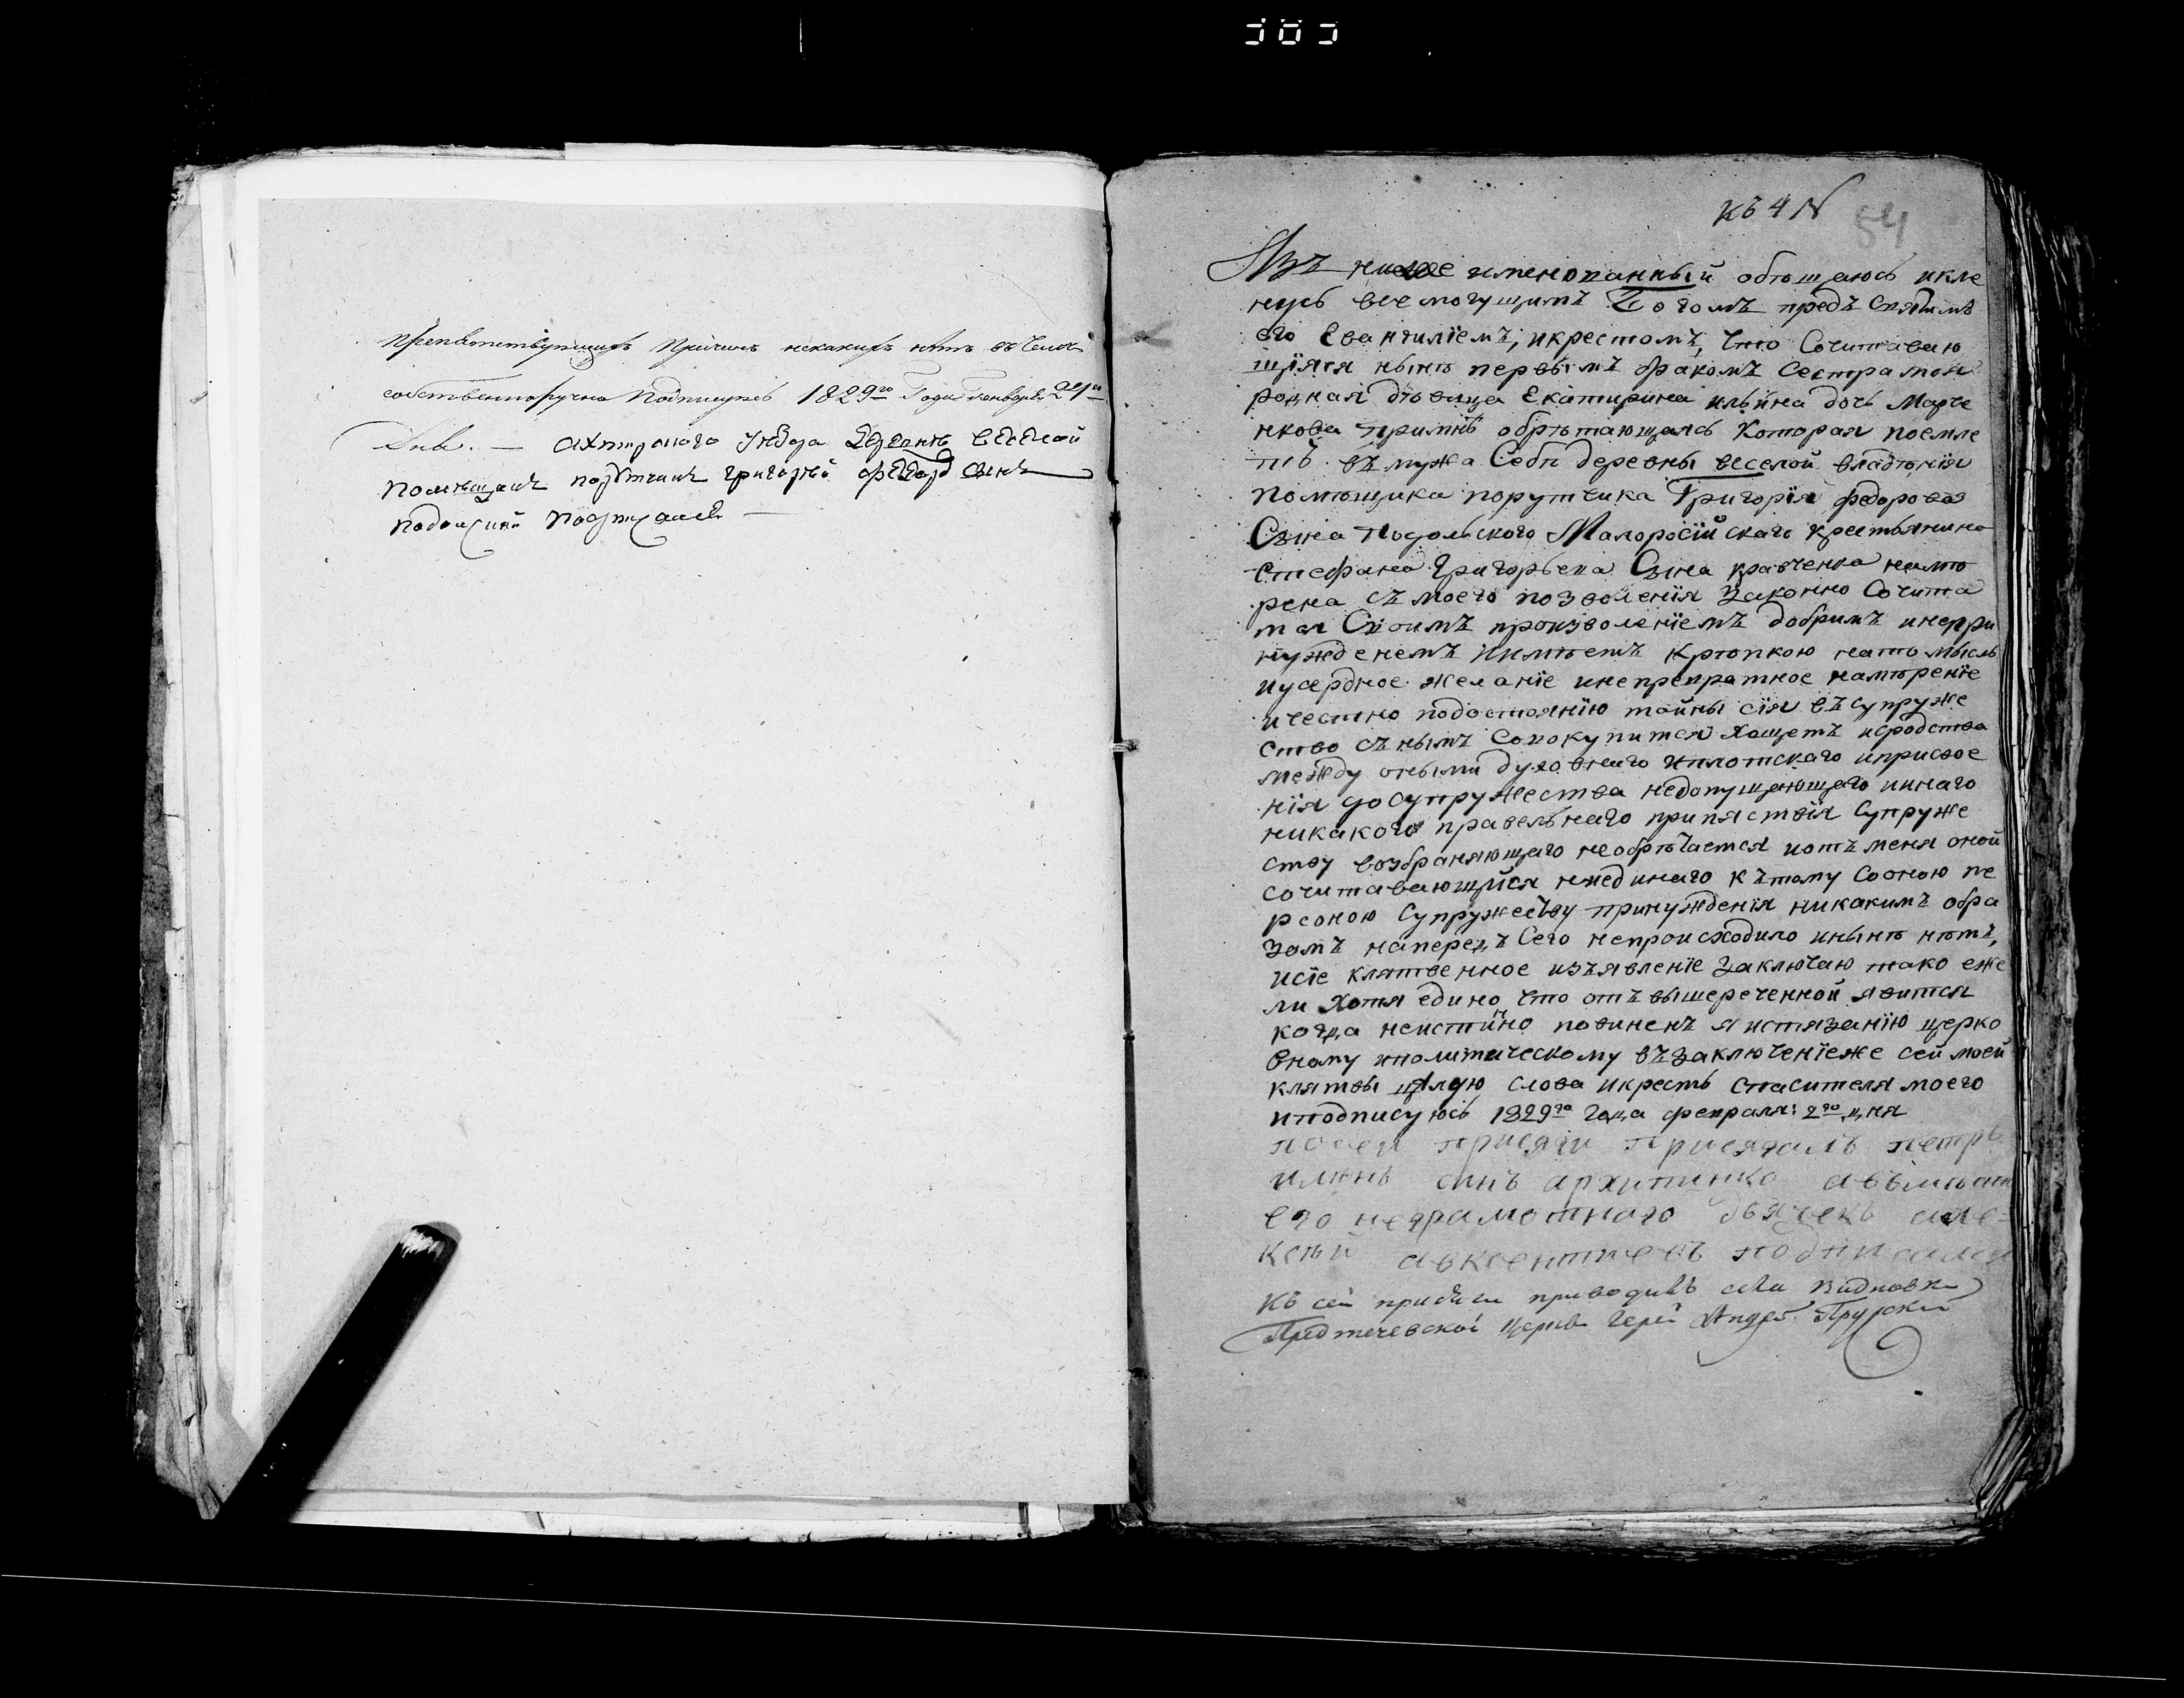 препятствующихъ причинъ никакихъ нѣтъ въ чемъ
собственноручно подпишусь 1829го Года Генваря 21го
дня. — Ахтрскаго уезда деревнѣ веселой
помѣщикъ порутчикъ григорій федоров сынъ
подолскій подписалъ —
къ 4 N
54
Азъ ниже именованный обѣщаюсь икле
нусь всемогущимъ Богомъ предъ Святимъ
его Евангилїемъ, икрестомъ, что Сочитаваю
щїяся нынѣ первымъ бракомъ Сестра моя
родная дѣвица Екатирина ильина дочь Марче
нкова примнѣ обрѣтающаясь Которая поемле
тъ въ мужа Себѣ деревны веселой владѣнїя
помѣщика порутчика Григорїя федорова
Сына Подольского Малоросїйскаго крестьянина
Стефана Григорьева Сына кравченка намѣ
рена съ моего позволенїя Законно Сочита
тся Своимъ произволенїемъ добримъ инепри
нужденемъ иимѣетъ крѣпкою нато мысль
иусердное желанїе инепревратное намѣренїе
ичестно подостоянїю тайны сїя въ супруже
ство съ нымъ Совокупится Хощетъ исродства
между оными духовнаго иплотскаго иприсвое
нїя до Супружества недопущающаго ииннаго
никакого правельнаго припяствїя Супруже
ству возбраняющаго необрѣтается иотъ меня оной
сочитавающийся ниединаго къ тому Сооною пе
рсоною Супружеству принужденїя никакимъ обра
зомъ напередъ Сего непроисходило инынѣ нѣтъ,
исїе клятвенное изъявленїе Заключаю тако еже
ли Хотя едино что отъ вышереченной явится
когда неистинно повиненъ я истязанїю церко
вному иполитическому въ заключенїеже сей моей
клятвы цѣлую слова икресть спасителя моего
иподписуюсь 1829го года февраля: 2го дня
посей присяги присягалъ петръ
илѣнъ синъ архипинко авъмѣстѣ
его неграмотнаго дьячекъ але=
ксѣй авксентиевъ подписался
Къ сей присяги приводилъ села Видновки
Предтечевской Церкви Иерей Андрей Прудскій